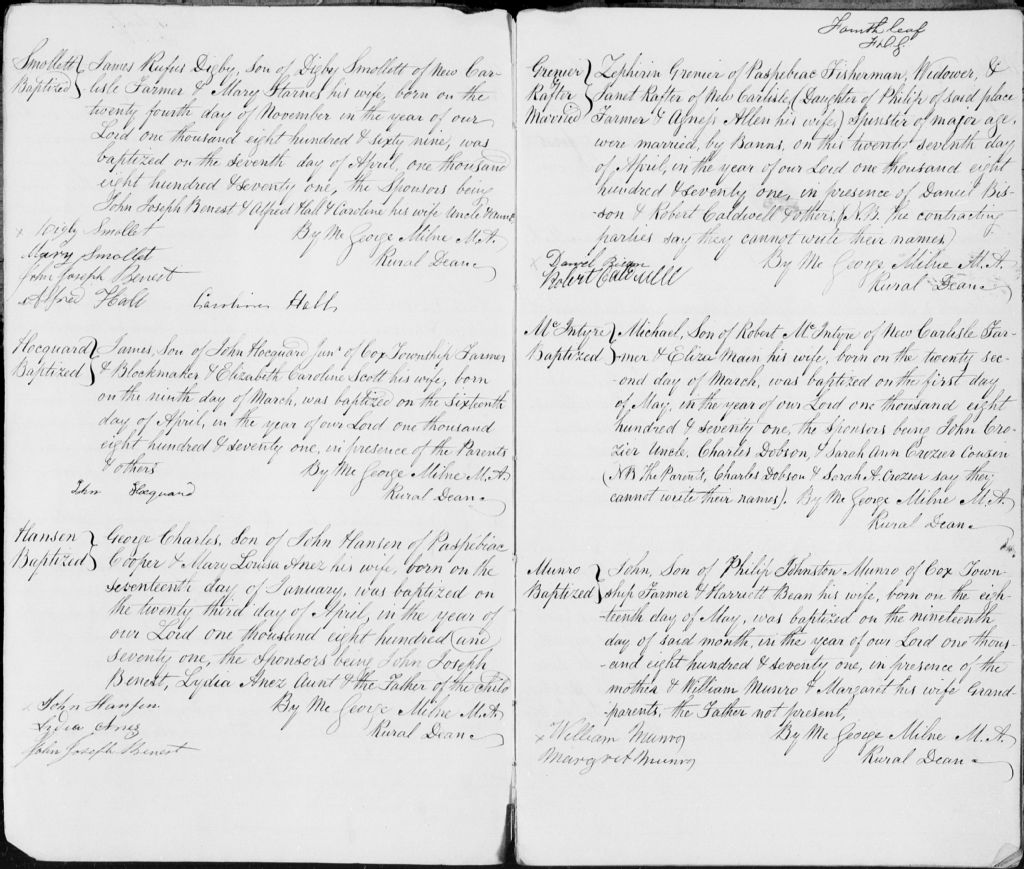 Smollett } James Rufus Digby, Son of Digby Smollett of New Car-
Baptized } lisle Farmer & Mary Starnes his wife, born on the
twenty fourth day of November in the year of our
Lord one thousand eight hundred & sixty nine, was
baptized on the seventh day of April, one thousand
eight hundred & seventy one, the Sponsors being
John Joseph Benest & Alfred Hall & Caroline his wife Uncle & aunt
x Digby Smollet By Me George Milne M.A.
Mary Smollet Rural Dean
John Joseph Benest
x Alfred Hall Caroline Hall
Hocquard } James, Son of John Hocquard Junr of Cox Township Farmer
Baptized } & Blockmaker & Elizabeth Caroline Scott his wife, born
on the ninth day of March, was baptized on the sixteenth
day of April, in the year of our Lord one thousand
eight hundred & seventy one, in presence of the Parents
& others By Me George Milne M.A.
John Hocquard Rural Dean
Hansen } George Charles, Son of John Hansen of Paspebiac
Baptized } Cooper & Mary Louisa Anez his wife, born on the
seventeenth day of January, was baptized on
the twenty third day of April, in the year of
our Lord one thousand eight hundred (and
seventy one, the Sponsors being John Joseph
Benest, Lydia Anez Aunt & the Father of the child
x John Hansen By Me George Milne M.A.
Lydia Anez Rural Dean
John Joseph Benest
Fourth leaf
Grenier } Zephirin Grenier of Paspebiac Fisherman, Widower, &
Rafter } Janet Rafter of New Carlisle, (Daughter of Philip of said place
Married } Farmer & Agness Allen his wife) Spinster of major age,
were married, by Banns, on this twenty seventh day
of April, in the year of our Lord one thousand eight
hundred & seventy one, in presence of Daniel Bis-
-son & Robert Caldwell & others, (N.B. the contracting
parties say they cannot write their names)
x Daniel Bison By Me George Milne M.A.
Robert Caldwell Rural Dean
McIntyre } Michael, Son of Robert McIntyre of New Carlisle Far-
Baptized } -mer & Eliza Main his wife, born on the twenty sec-
-ond day of March, was baptized on the first day
of May, in the year of our Lord one thousand eight
hundred & seventy one, the Sponsors being John Cro-
zier Uncle, Charles Dobson, & Sarah Ann Crozier Cousin
(N.B. The Parents, Charles Dobson & Sarah A. Crozier say they
cannot write their names). By Me George Milne M.A.
Rural Dean
Munro } John, Son of Philip Johnston Munro of Cox Town-
Baptized } ship Farmer & Harriett Bean his wife, born on the eigh-
-teenth day of May, was baptized on the nineteenth
day of said month, in the year of our Lord one thous-
-and eight hundred & seventy one, in presence of the
mother & William Munro & Margaret his wife Grand-
-parents, the Father not present,
x William Munro By Me George Milne M.A.
Margret Munro Rural Dean